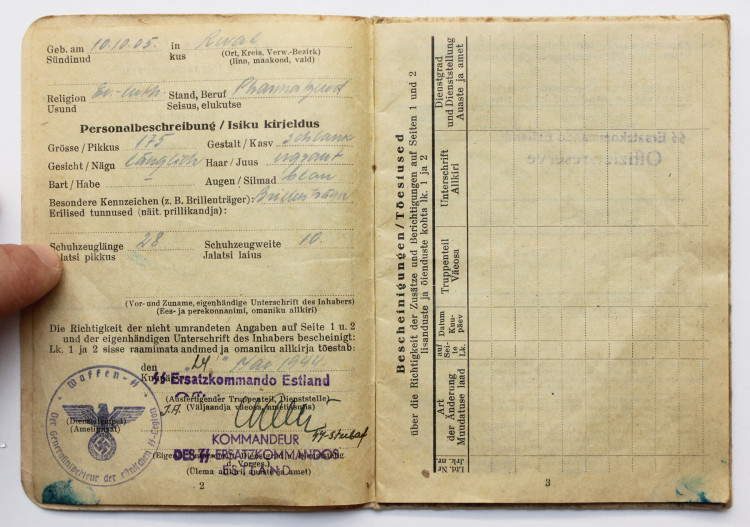 Geb. am 10.10.05. in Reval
Sündinud kus (Ort, Kreis, Verw.-Bezirk)
(linn, maakond, vald)
Religion Ev.-luth. Stand, Beruf
Usund Seisus, elukutse
Personalbeschreibung / Isiku kirjeldus
Grösse / Pikkus 175 Gestalt / Kasv schlank
Gesicht / Nägu länglich Haar / Juus
Bart / Habe Augen / Silmad blau
Besondere Kennzeichen (z. B. Brillenträger): Brillenträger
Erilised tunnused (näit. prillikandja):
Schuhzeuglänge 28 Schuhzeugweite 10.
Jalatsi pikkus Jalatsi laius
(Vor- und Zuname, eigenhändige Unterschrift des Inhabers)
(Ees- ja perekonnanimi, omaniku allkiri)
Die Richtigkeit der nicht umrandeten Angaben auf Seite 1 u. 2
und der eigenhändigen Unterschrift des Inhabers bescheinigt:
Lk. 1 ja 2 sisse raamimata andmed ja omaniku allkirja tõestab:
den „24" Mai 1944
SS Ersatzkommando Estland
(Ausfertigender Truppenteil, Dienststelle)
(Väljaandja väeosa, ametiasutus)
Waffen-SS
Der Generalinspekteur der estnischen SS-Legion
(Dienststempel)
(Ametipitsat)
I.A.
KOMMANDEUR
DES SS-ERSATZKOMMANDOS
ESTLAND
(Ülema allkiri, auaste ja amet)
2
Bescheinigungen / Tõestused
über die Richtigkeit der Zusätze und Berichtigungen auf Seiten 1 und 2
lisanduste ja õienduste kohta lk. 1 ja 2
Lfd. Nr
Jrk. nr.
Art
der Änderung
Muudatuse laad
auf
Sei-
te
Lk.
Datum
Kuu-
päev
Truppenteil
Väeosa
Unterschrift
Allkiri
Dienstgrad
und Dienststellung
Auaste ja amet
3